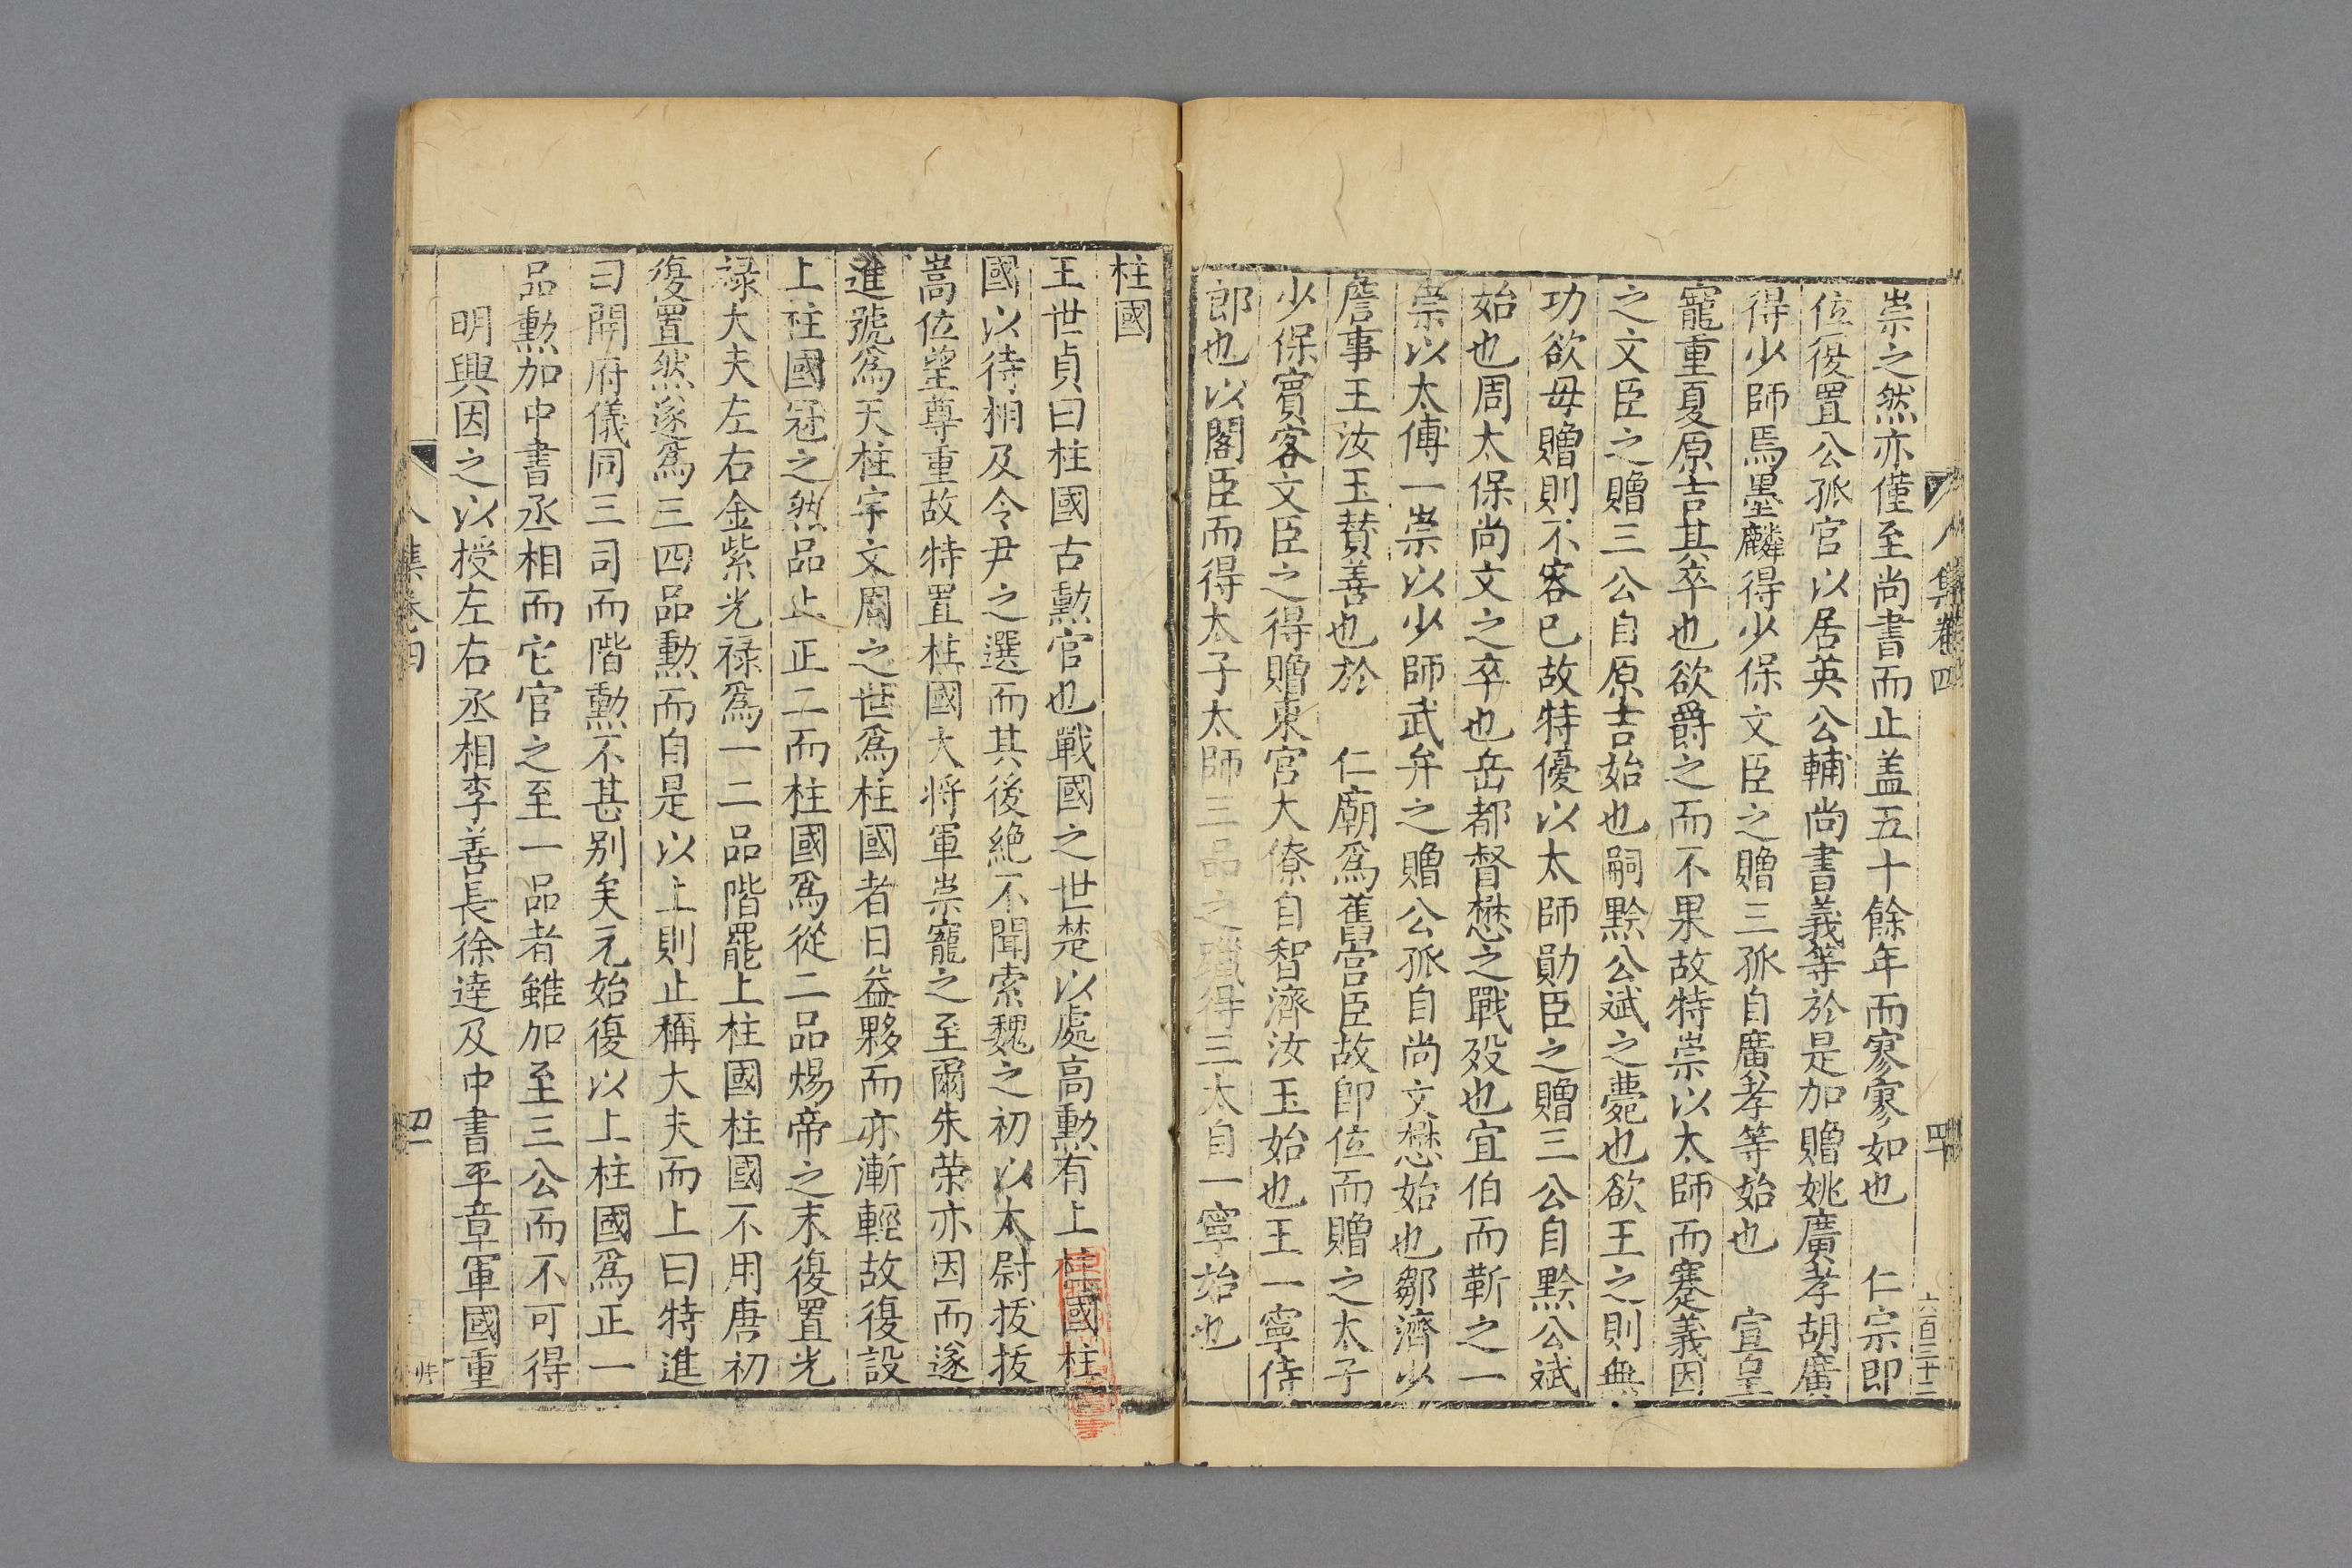 八集卷四
四十
六百三十二
崇之然亦僅至尚書而止盖五十餘年而寥寥如也　仁宗即
位復置公孤官以居英公輔尚書義等於是加贈姚廣孝胡廣
得少師焉墨麟得少保文臣之贈三孤自廣孝等始也　宣皇
寵重夏原吉其卒也欲爵之而不果故特崇以太師而蹇義因
之文臣之贈三公自原吉始也嗣黔公斌之薨也欲王之則無
功欲毋贈則不容已故特優以太師勛臣之贈三公自黔公斌
始也周太保尚文之卒也岳都督懋之戰歿也宜伯而靳之一
崇以太傅一崇以少師武弁之贈公孤自尚文懋始也鄒濟少
詹事王汝玉賛善也於　仁廟爲舊宮臣故卽位而贈之太子
少保賓客文臣之得贈東宮大僚自智濟汝玉始也王一寧侍
郎也以閣臣而得太子太師三品之職得三太自一寧始也
柱國
王世貞曰柱國古勲官也戰國之世楚以處高勲有上柱國柱
國以待相及令尹之選而其後絶不聞索魏之初以太尉拔拔
嵩位望尊重故特置柱國大将軍崇寵之至爾朱荣亦因而遂
進號爲天柱宇文周之世爲柱國者日益夥而亦漸輕故復設
上柱國冠之然品止正二而柱國爲從二品煬帝之末復置光
禄大夫左右金紫光禄爲一二品階罷上柱國柱國不用唐初
復置然遂爲三四品勲而自是以上則止稱大夫而上曰特進
曰開府儀同三司而階勲不甚别矣元始復以上柱國爲正一
品勲加中書丞相而它官之至一品者雖加至三公而不可得
明興因之以授左右丞相李善長徐逹及中書平章軍國重
八集卷四